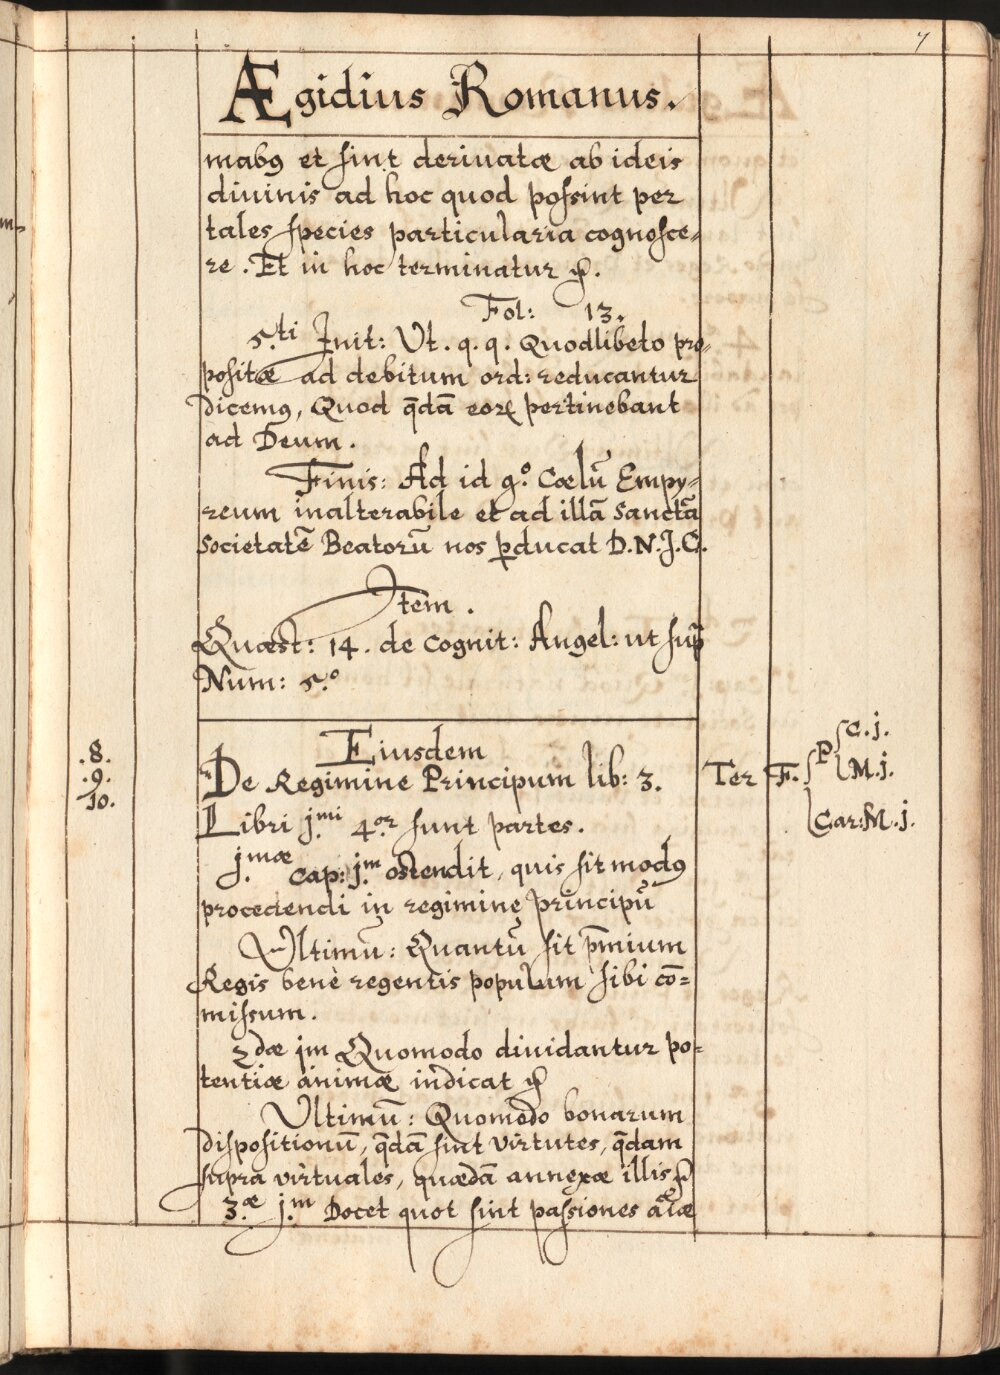 7
Ægidius Romanus.
mabꝰ et sint deriuatæ ab ideis
diuinis ad hoc quod possint per
tales species particularia cognosce=
re. Et in hoc terminatur
Fol: 13.
5.ti Init: Vt. q. q. Quodlibeto pro=
positæ ad debitum ord: reducantur
dicemꝰ, Quod q̄dā eorꝝ pertinebant
ad Deum.
Finis: Ad id g.º Cœlū Empy=
reum inalterabile et ad illā sanctā
societatē Beatorū nos ꝑducat D.N.J.C.
Item.
Quæst: 14. de Cognit: Angel: ut sup̄
Num: 5.º
Eiusdem
.8.
.9.
10.
De Regimine Principum lib: 3. Ter F. P C.j.
M.j.
Car:M.j.
Libri j.mi 4.or sunt partes.
j.mæ Cap: j.m ostendit, quis sit modꝰ
procedendi in regimine principū
Vltimū: Quantū sit p̄mium
Regis benè regentis populum sibi cō=
missum.
2dæ jm Quomodo diuidantur po=
tentiæ animæ indicat
Vltimū: Quomodo bonarum
dispositionū, q̄dā sint virtutes, q̄dam
supra virtuales, quædā annexæ illis
3.æ j.m Docet quot sint passiones aīæ